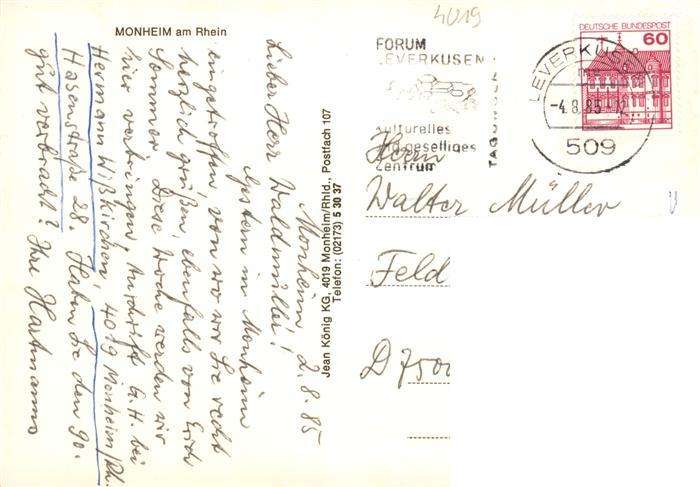 MONHEIM am Rhein
Monheim 2. 8. 85
Lieber Herr Waldmüller!
Gestern in Monheim
eingetroffen, von wo wir Sie recht
herzlich grüßen, ebenfalls von Erich
Sommer. Diese Woche werden wir
hier verbringen, Anschrift b. H. bei
Hermann Wißkirchen, 4019 Monheim/Rh.
Hasenstraße 28. Haben Sie den 90.
gut verbracht? Ihre Hartmanns
Jean König KG, 4019 Monheim/Rhld., Postfach 107
Telefon: (02173) 5 30 37
4019
FORUM
LEVERKUSEN
kulturelles
und geselliges
Zentrum
LEVERKUSEN
-4.8.85-12
509
DEUTSCHE BUNDESPOST
60
Herrn
Walter Müller
Feld
D 7500